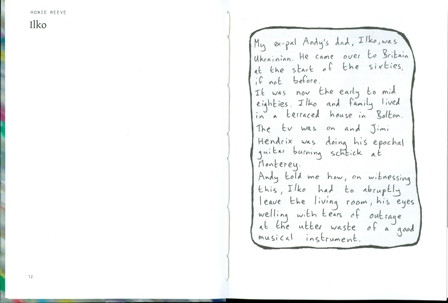 HOWIE REEVE
Ilko
My ex-pal Andy's dad, Ilko, was
Ukrainian. He came over to Britain
at the start of the sixties,
if not before.
It was now the early to mid
eighties. Ilko and family lived
in a terraced house in Bolton.
The tv was on and Jimi
Hendrix was doing his epochal
guitar burning schtick at
Monterey.
Andy told me how, on witnessing
this, Ilko had to abruptly
leave the living room, his eyes
welling with tears of outrage
at the utter waste of a good
musical instrument.
12